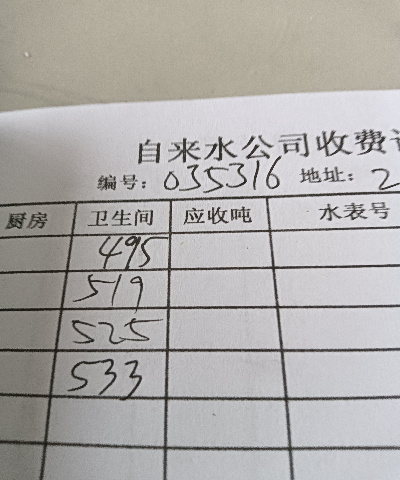 自来水公司收费
编号: 035316 地址: 2
厨房 卫生间 应收吨 水表号
495
519
525
533